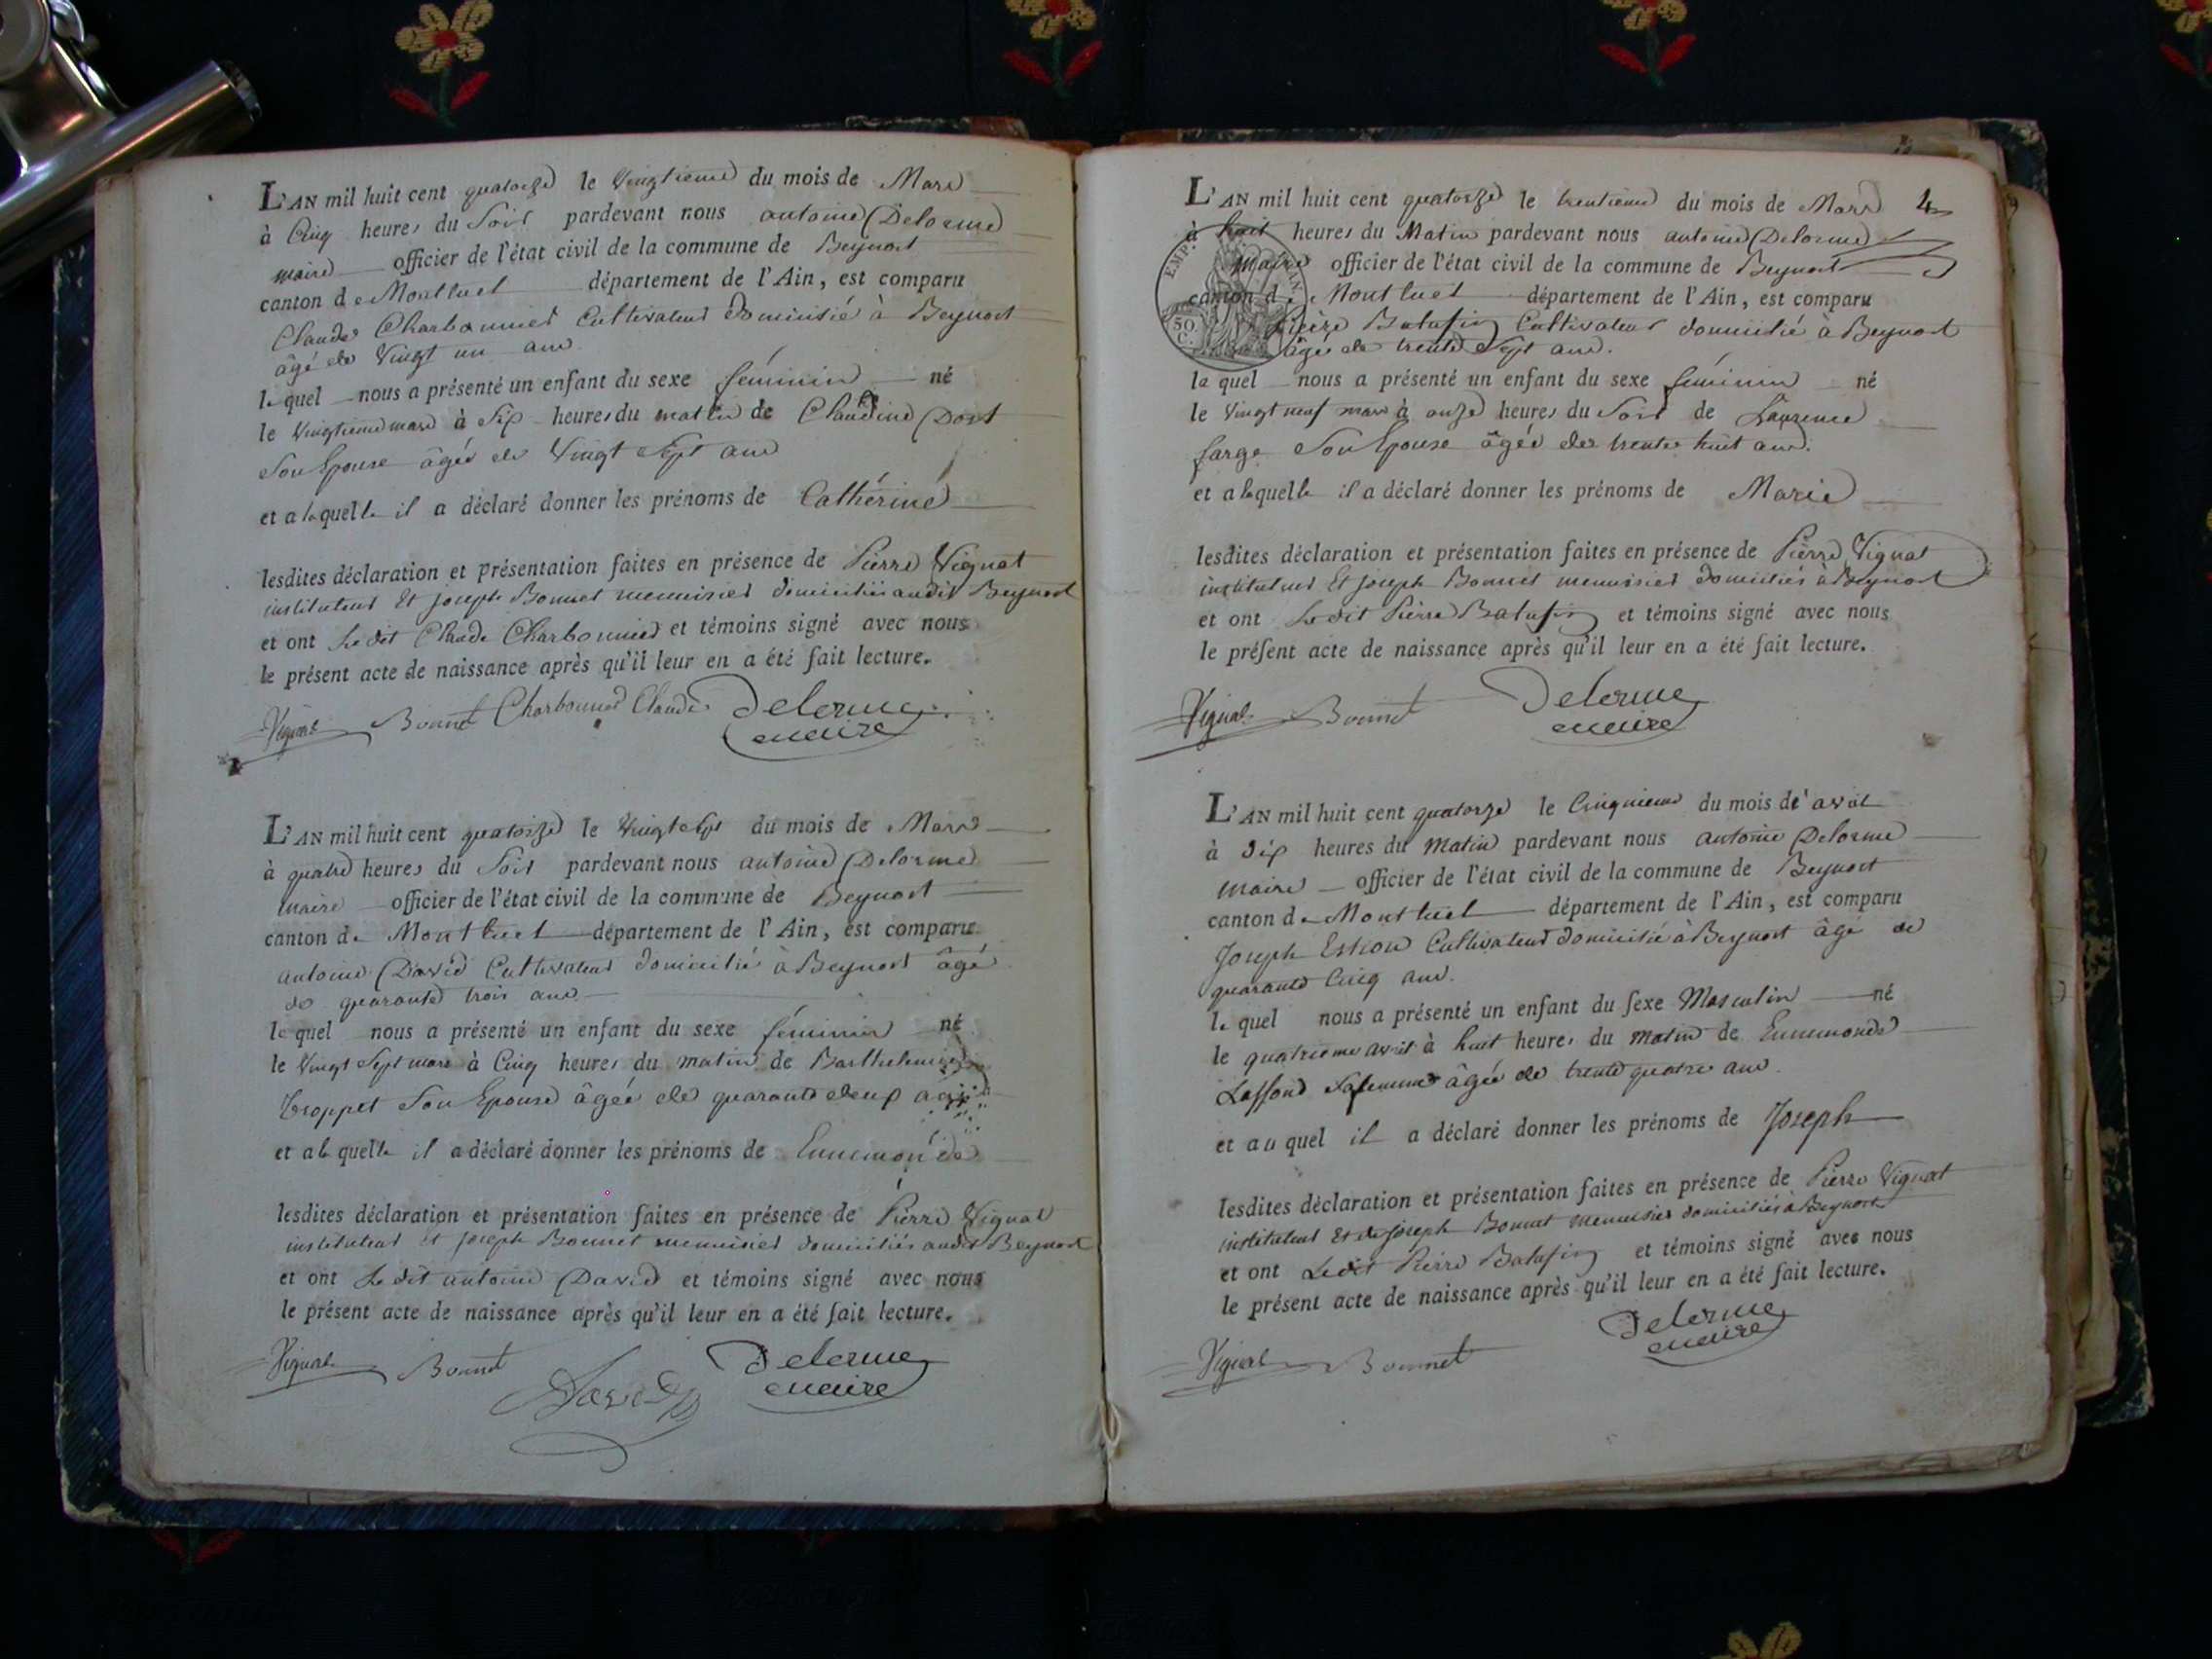 L'AN mil huit cent quatorze le vingtieme du mois de Mars
à Cinq heures du Soir pardevant nous antoine Delorme
maire officier de l'état civil de la commune de Beynost
canton de Montluel département de l'Ain, est comparu
Claude Charbonnier Cultivateur domicilié à Beynost
âgé de vingt un ans
lequel nous a présenté un enfant du sexe féminin né
le vingtieme mars à Six heures du matin de Claudine Dost
Son Epouse âgée de vingt Sept ans
et a laquelle il a déclaré donner les prénoms de Cathérine
lesdites déclaration et présentation faites en présence de Pierre Vignat
instituteur Et joseph Bonnet menuisier domiciliés audit Beynost
et ont Ledit Claude Charbonnier et témoins signé avec nous
le présent acte de naissance après qu'il leur en a été fait lecture.
Vignat Bonnet Charbonnier Claude Delorme
maire
L'AN mil huit cent quatorze le vingt Sept du mois de Mars
à quatre heures du Soir pardevant nous antoine Delorme
maire officier de l'état civil de la commune de Beynost
canton de Montluel département de l'Ain, est comparu
antoine David Cultivateur domicilié à Beynost âgé
de quarante trois ans
lequel nous a présenté un enfant du sexe féminin né
le vingt Sept mars à Cinq heures du matin de Barthelemie
Troppet Son Epouse âgée de quarante deux ans
et a laquelle il a déclaré donner les prénoms de Ennemonde
lesdites déclaration et présentation faites en présence de Pierre Vignat
instituteur et joseph Bonnet menuisier domiciliés audit Beynost
et ont Ledit antoine David et témoins signé avec nous
le présent acte de naissance après qu'il leur en a été fait lecture.
Vignat Bonnet David Delorme
maire
4
L'AN mil huit cent quatorze le trentieme du mois de Mars
à huit heures du Matin pardevant nous antoine Delorme
maire officier de l'état civil de la commune de Beynost
canton de Montluel département de l'Ain, est comparu
EMP. FRAN.
50. C.
Pierre Batufin Cultivateur domicilié à Beynost
âgé de trente Sept ans.
lequel nous a présenté un enfant du sexe féminin né
le vingt neuf mars à onze heures du Soir de Laurence
farge Son Epouse âgée de trente huit ans.
et a laquelle il a déclaré donner les prénoms de Marie
lesdites déclaration et présentation faites en présence de Pierre Vignat
instituteur Et joseph Bonnet menuisier domiciliés à Beynost
et ont Ledit Pierre Batufin et témoins signé avec nous
le présent acte de naissance après qu'il leur en a été fait lecture.
Vignat Bonnet Delorme
maire
L'AN mil huit cent quatorze le Cinquieme du mois de avril
à dix heures du Matin pardevant nous antoine Delorme
maire officier de l'état civil de la commune de Beynost
canton de Montluel département de l'Ain, est comparu
Joseph Estion Cultivateur domicilié à Beynost âgé de
quarante Cinq ans.
lequel nous a présenté un enfant du sexe Masculin né
le quatrieme avril à huit heures du matin de Ennemonde
Laffond Sa femme âgée de trente quatre ans.
et au quel il a déclaré donner les prénoms de Joseph
lesdites déclaration et présentation faites en présence de Pierre Vignat
instituteur Et de Joseph Bonnet menuisier domiciliés à Beynost
et ont Ledit Pierre Batufin et témoins signé avec nous
le présent acte de naissance après qu'il leur en a été fait lecture.
Vignat Bonnet Delorme
maire